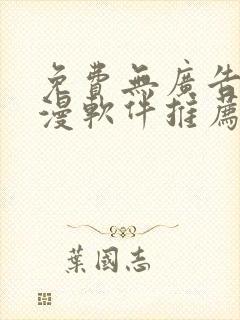 免費無廣告
漫軟件推薦
葉國志